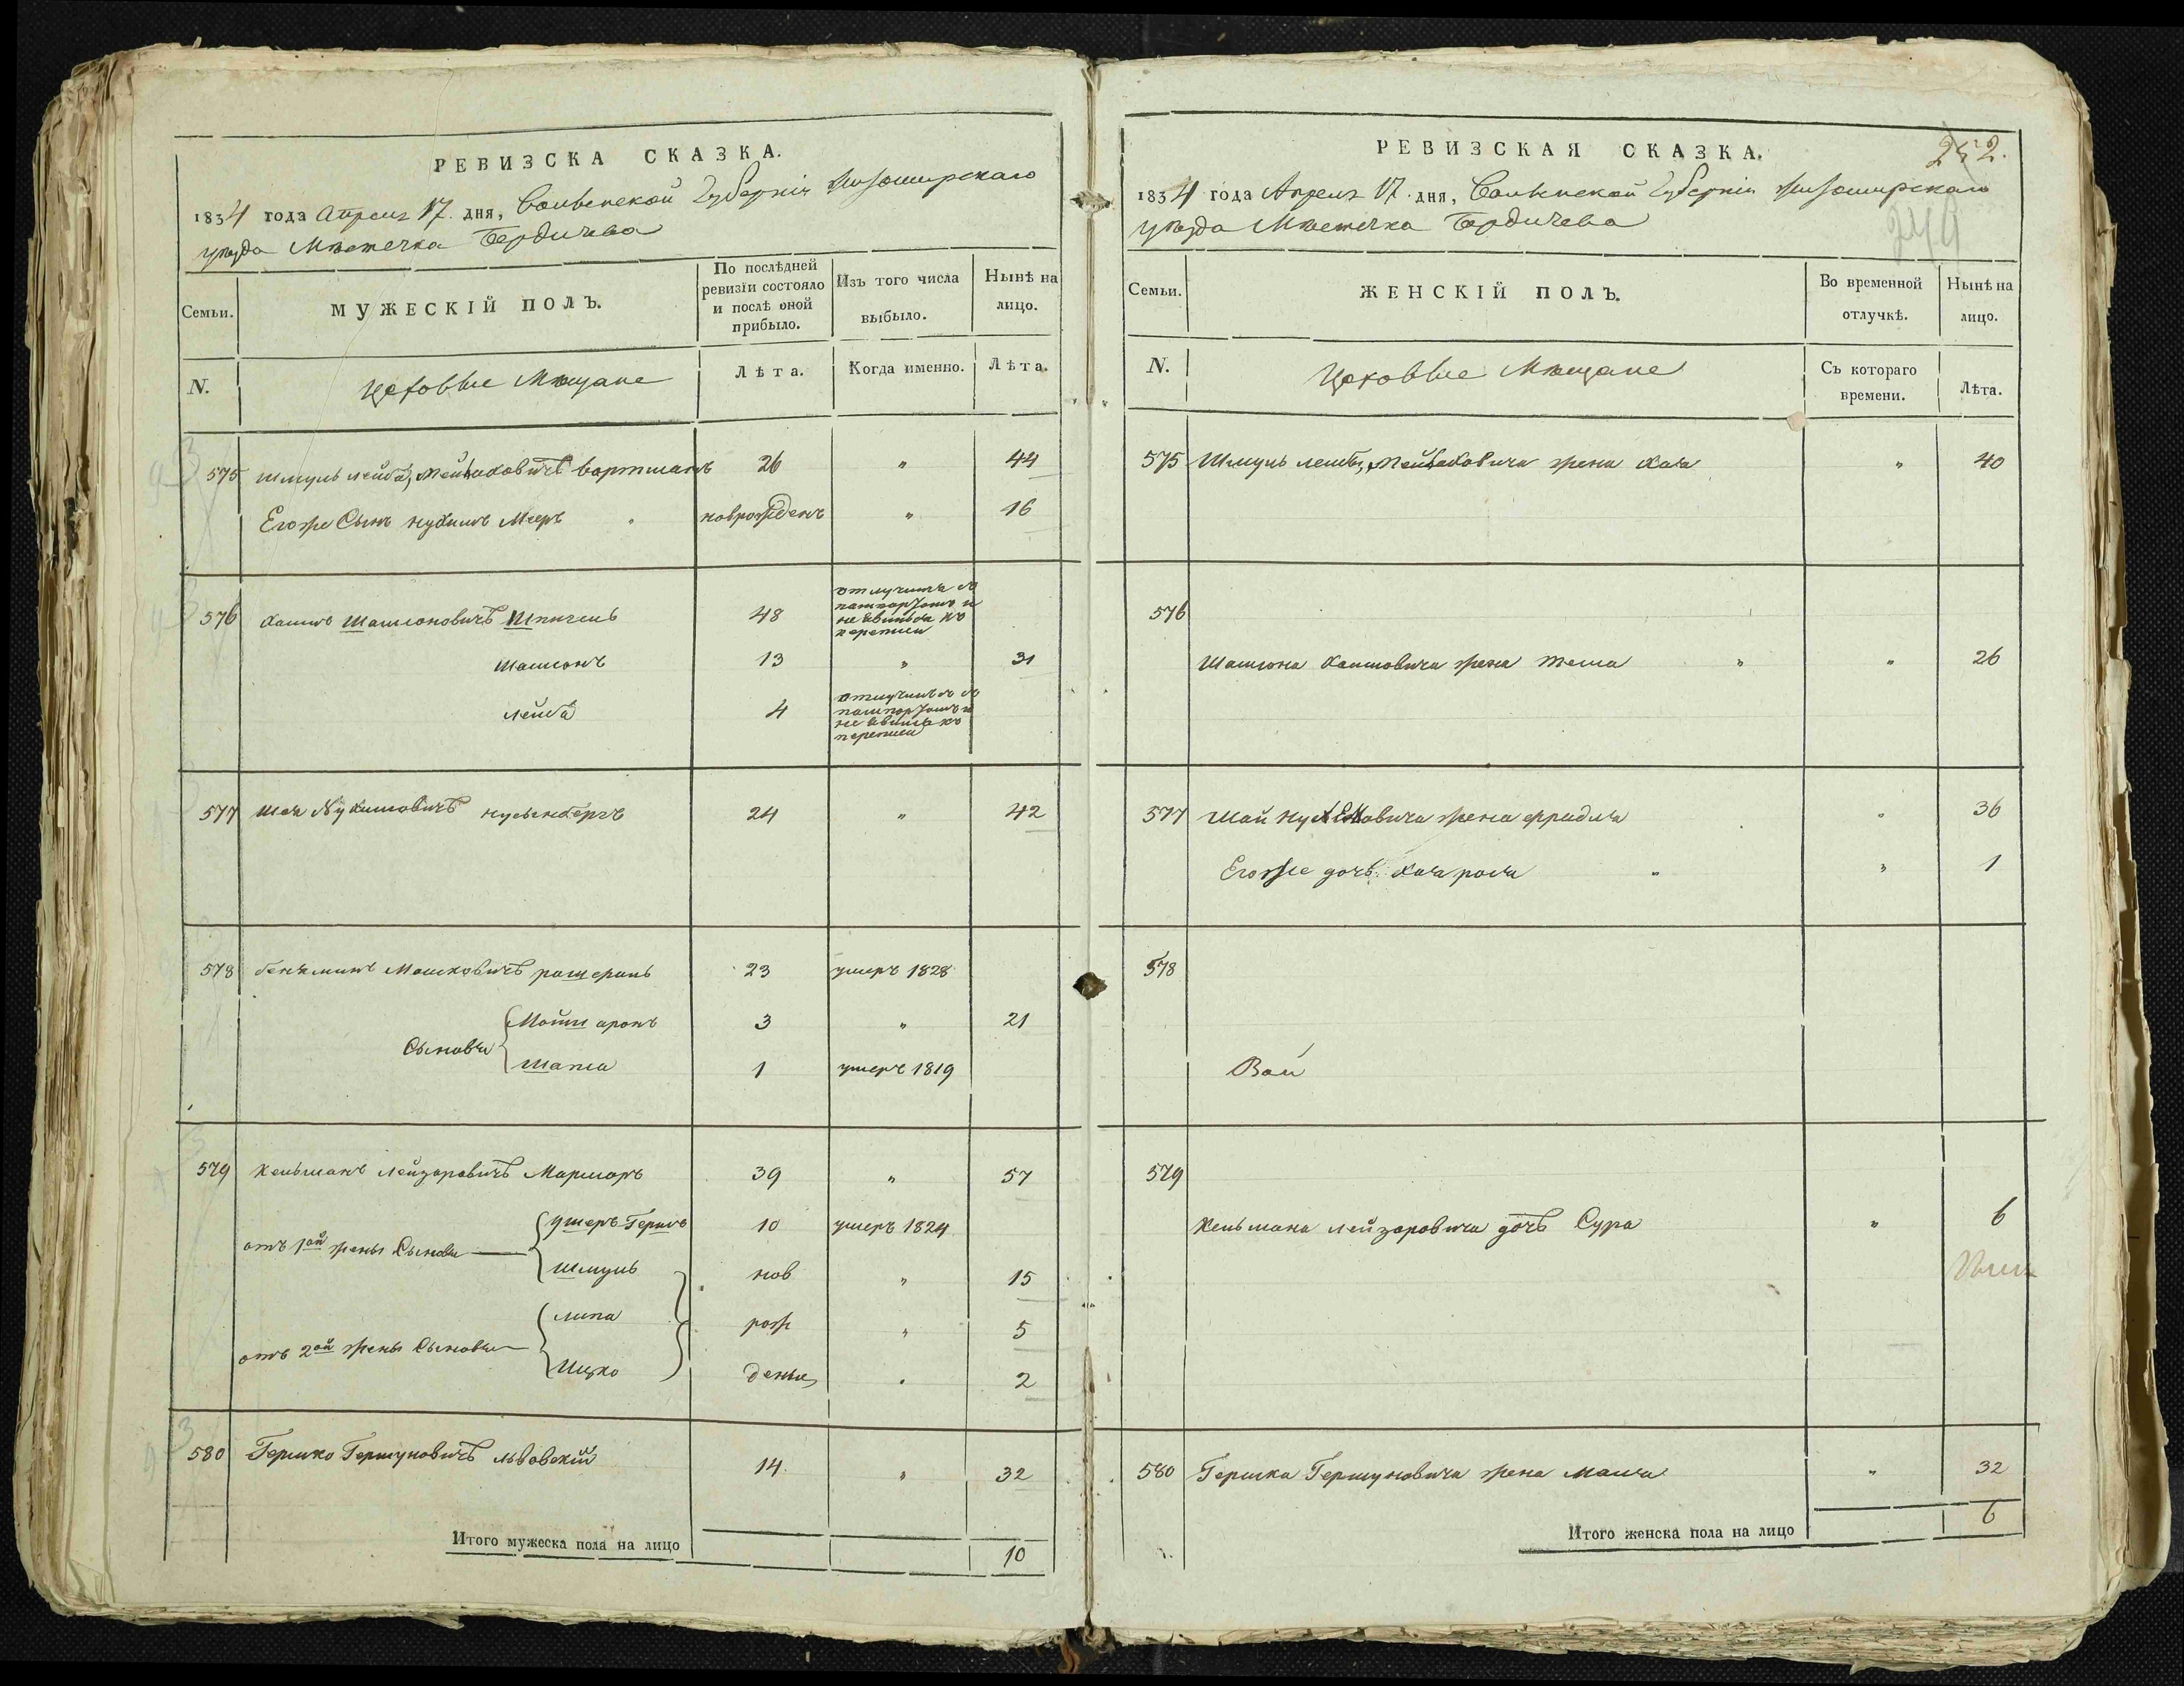 РЕВИЗСКА СКАЗКА.
1834 года Апреля 17. дня, Волынской Губерніи Житомирскаго
уезда Местечка Бердичева
Семьи.
МУЖЕСКІЙ ПОЛЪ.
По послѣдней ревизіи состояло и послѣ оной прибыло.
Изъ того числа выбыло.
Нынѣ на лицо.
N.
Цеховые Мещане
Лѣта.
Когда именно.
Лѣта.
575 Шмуль лейба, 26 " 44
Егоже Сынъ нухимъ Мееръ новрожденъ " 16
576 Хаимъ Шаmсоновичъ Шпигель 48 отлучился съ пашпортомъ и не явился къ переписи
Шамсонъ 13 " 31
лейба 4 отлучился съ пашпортомъ и не явился къ переписи
577 Шая Нухимовичъ нусынбергъ 24 " 42
578 бенъяминъ Мошковичъ 23 умеръ 1828
Сыновья
Мойши аронъ 3 " 21
Шапса 1 умеръ 1819
579 Кельманъ лейзоровичъ Марморъ 39 " 57
отъ 1ой жены Сыновья
Ушеръ Гершъ 10 умеръ 1824
Шмуль нов " 15
отъ 2ой жены Сыновья
липа рож " 5
Ицко дены 2
580 Гершко Гершуновичъ львовскій 14. " 32
Итого мужеска пола на лицо 10
РЕВИЗСКАЯ СКАЗКА.
252.
249
1834 года Апреля 17. дня, Волынской Губерніи Житомирскаго
уезда Местечка Бердичева
Семьи.
ЖЕНСКІЙ ПОЛЪ.
Во временной отлучкѣ.
Нынѣ на лицо.
N.
Цеховые Мещане
Съ котораго времени.
Лѣта.
575 Шмуля лейбы, жена Хая " 40
576
Шамсона Хаимовича жена " " 26
577 Шай нухимовича жена фрадля " 36
Егоже дочь Хая рося " " 1
578
579
Кельмана лейзоровича дочь Сура " 6
580 Гершка Гершуновича жена малча " 32
Итого женска пола на лицо 6